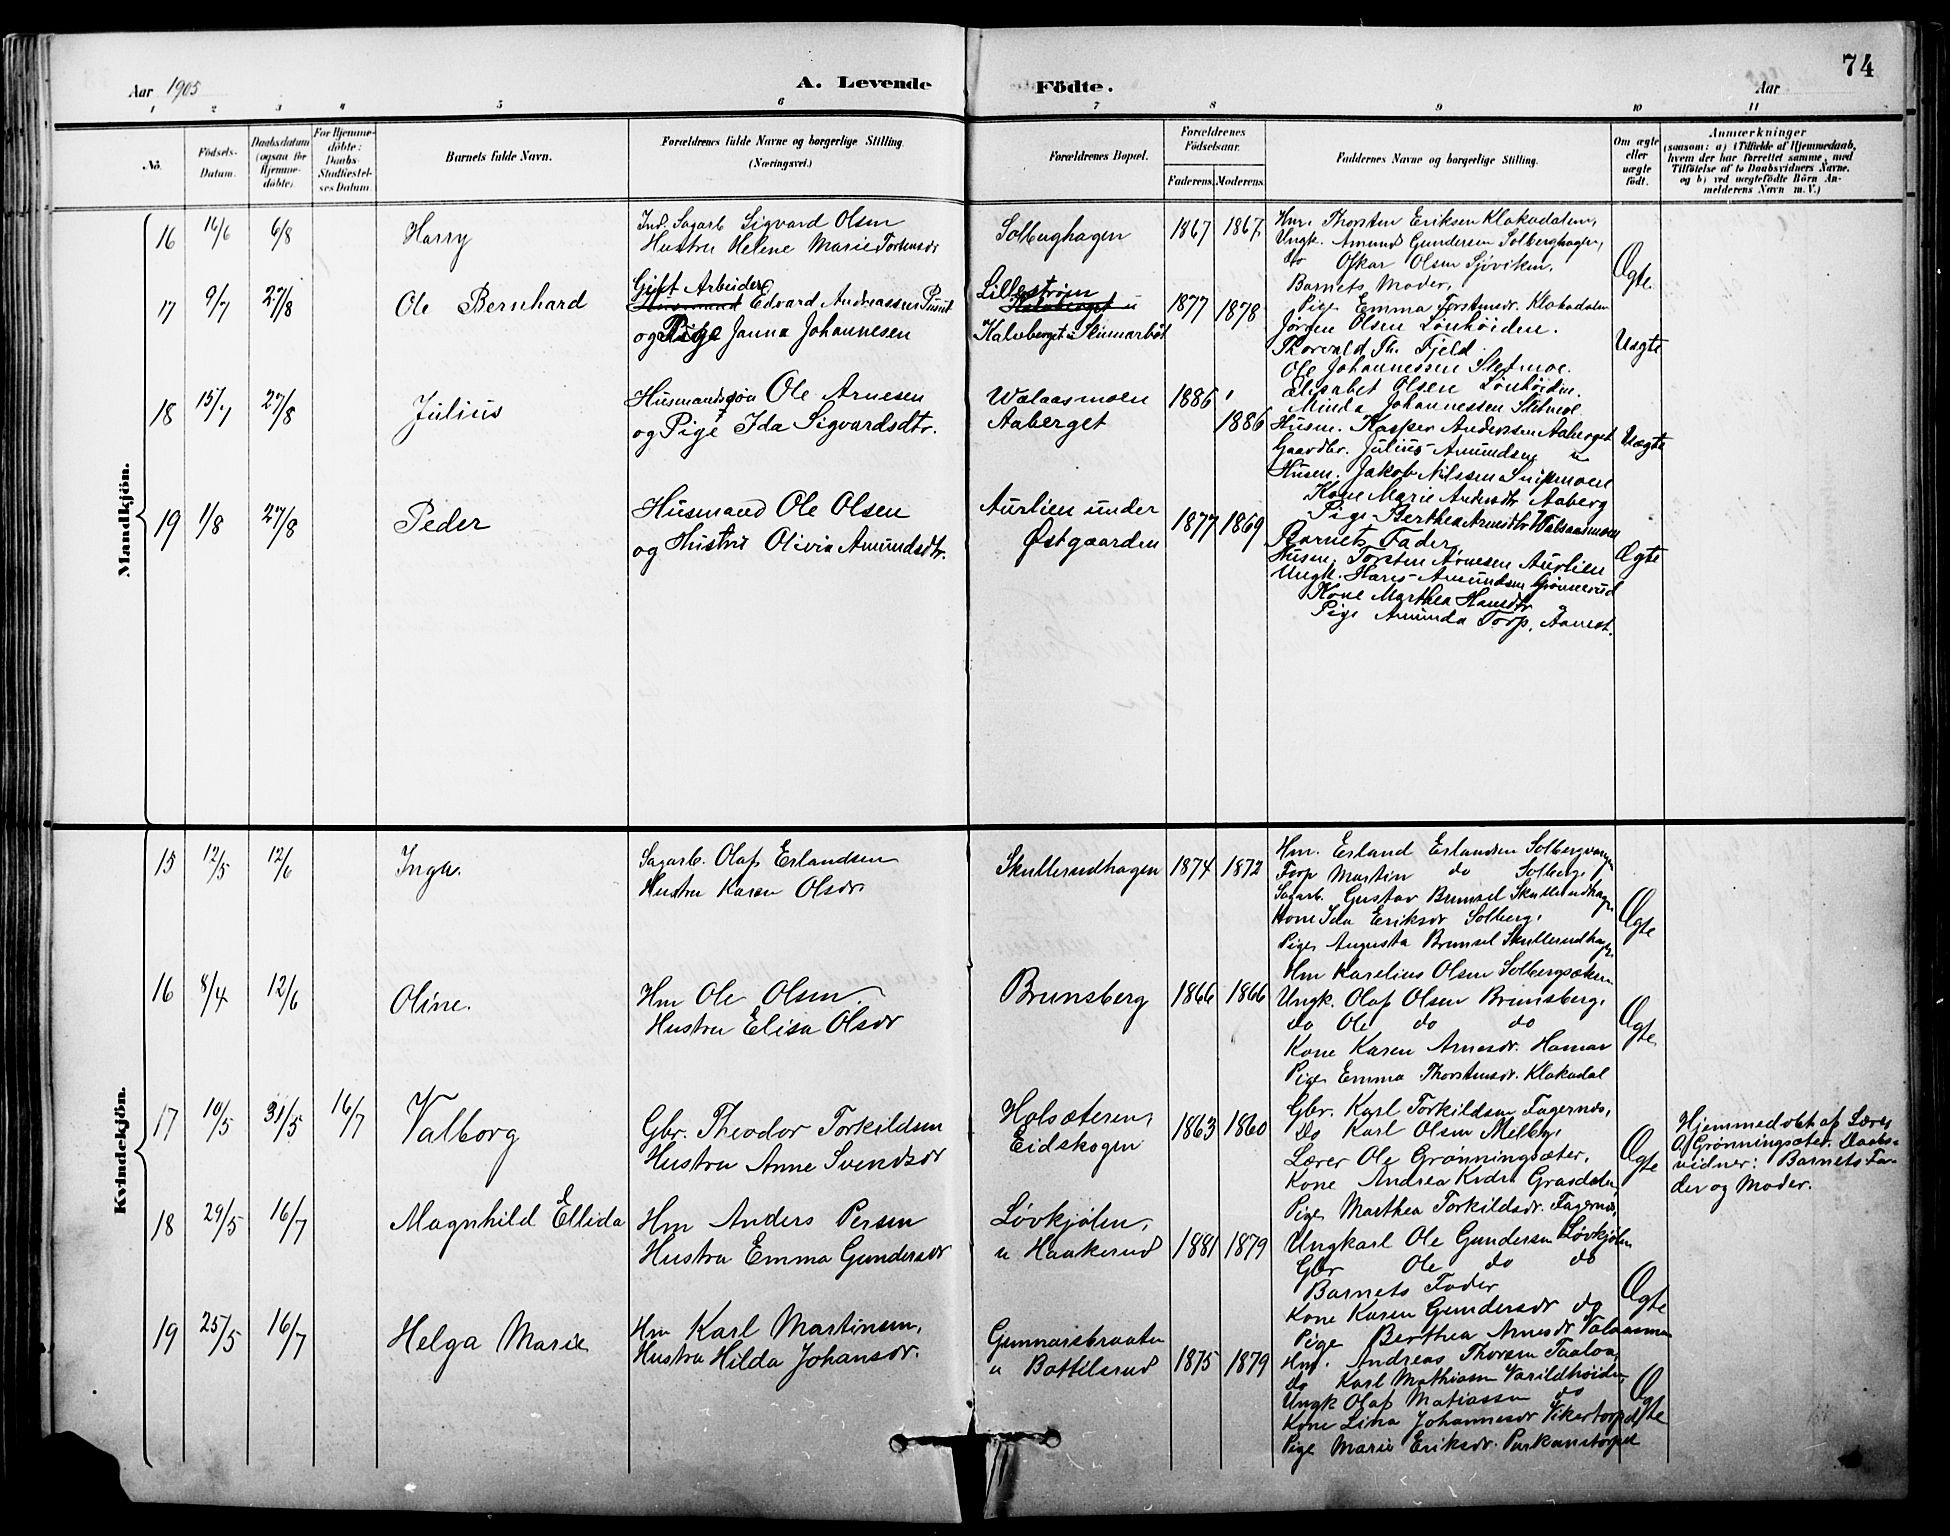 74
Aar 1905
A. Levende Födte.
Aar
1 2 3 4 5 6 7 8 9 10 11
No.
Födsels-Datum.
Daabsdatum (ogsaa for Hjemme-døbte).
For Hjemme-døbte: Daabs-Stadfæstel-ses Datum.
Barnets fulde Navn.
Forældrenes fulde Navne og borgerlige Stilling. (Næringsvei.)
Forældrenes Bopæl.
Forældrenes Födselsaar.
Faderens. Moderens.
Faddernes Navne og borgerlige Stilling.
Om ægte eller uægte født.
Anmærkninger
(saasom: a) i Tilfælde af Hjemmedaab,
hvem der har forrettet samme, med
Tilföielse af to Daabsvidners Navne,
og b) ved uægtefödte Börn An-
melderens Navn m. V.)
Mandkjön.
16 16/6 6/8 Harry
Ind. Sagarb. Sigvard Olsen
Hustru Helene Marie Torkensdr
Solberghagen 1867 1867
Hm. Thorsten Eriksen Klakadalen,
Ungk. Amund Gundersen Solberghagen,
do Oskar Olsen Sjøviken,
Barnets Moder,
Pige Emma Torstensdr. Klakadalen
Ægte
17 9/7 27/8 Ole Bernhard
Gift Arbeider
Edvard Andreassen
og Pige Janna Johannesen
Lillestrøm
Kalvberget u
1877 1878
Jørgen Olsen Lønhøiden.
Thorvald Th. Fjeld
Ole Johannessen Sletmoe.
Elisabet Olsen Lønhøiden.
Minda Johannessen Sletmoe
Uægte
18 15/7 27/8 Julius
Husmandssøn Ole Arnesen
og Pige Ida Sigvardsdtr.
Walaasmoen
Aaberget
1886
1886
Husm. Kasper Andersen Aaberget
Gaardbr. Julius Amundsen u
Husm. Jakob Nilssen Snipmoen
Kone Marie Andersdtr Aaberg
Pige Berthea Arnesdtr Walaasmoen
Uægte
19 1/8 27/8 Peder
Husmand Ole Olsen
og Hustru Olivia Amundsdtr.
Aurlien under
Østgaarden
1877 1869
Barnets Fader
Husm. Torsten Arnesen Aurlien
Ungk. Hans Amundsen Grønnerud
Kone Marthea Hansdtr
Pige Amunda Torp,
Ægte
Kvindekjön.
15 12/5 12/6 Inga.
Sagarb. Olaf Erlandsen
Hustru Karen Olsdr
Skullerudhagen 1874 1872
Hm. Erland Erlandsen Solbergvangen
Torp Martin do Solberg,
Sagarb. Gustav Brunsel Skullerudhagen
Kone Ida Eriksdr Solberg,
Pige Augusta Brunsel Skullerudhagen
Ægte
16 8/4 12/6 Oline.
Hm Ole Olsen
Hustru Elisa Olsdr
Brunsberg 1866 1866
Hm Karelius Olsen
Ungk. Olaf Olsen Brunsberg,
do Ole do do
Kone Karen Arnesdr. Hamar
Pige Emma Thorstensdr. Klakadal
Ægte
17 10/5 31/5 16/7 Valborg
Gbr. Theodor Torkildsen
Hustru Anne Svendsdr
Holsæteren,
Eidskogen
1863 1860
Gbr. Karl Torkildsen Fagernes,
Do Karl Olsen Melby,
Lærer Ole Grønningsæter,
Kone Andrea Krdr. Grasdalen,
Pige Marthea Torkildsdr. Fagernes,
Ægte
Hjemmedøbt af Lærer
O. Grønningsæter. Daabs-
vidner: Barnets Fa-
der og Moder.
18 29/5 16/7 Magnhild Ellida
Hm Anders Persen
Hustru Emma Gundersdr
Løvkjølen,
u Haakerud
1881 1879
Ungkarl Ole Gundersen Løvkjølen
Gbr Ole do do
Barnets Fader
Kone Karen Gundersdr do
Pige Berthea Arnesdr Valaasmoen
Ægte
19 25/5 16/7 Helga Marie
Hm Karl Martinsen,
Hustru Hilda Johansdr.
Gunnarsbraaten
u Bottilsrud
1875 1879
Hm. Andreas Thoresen Taaloa,
Do Karl Mathiasen Varildhøiden
Ungk Olaf Matiassen do
Kone Lina Johannesdr Vikertorpet
Pige Marie Eriksdr.
Ægte